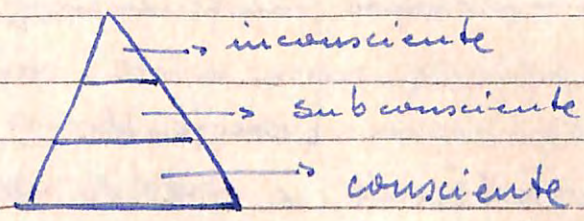 inconsciente
subconsciente
consciente